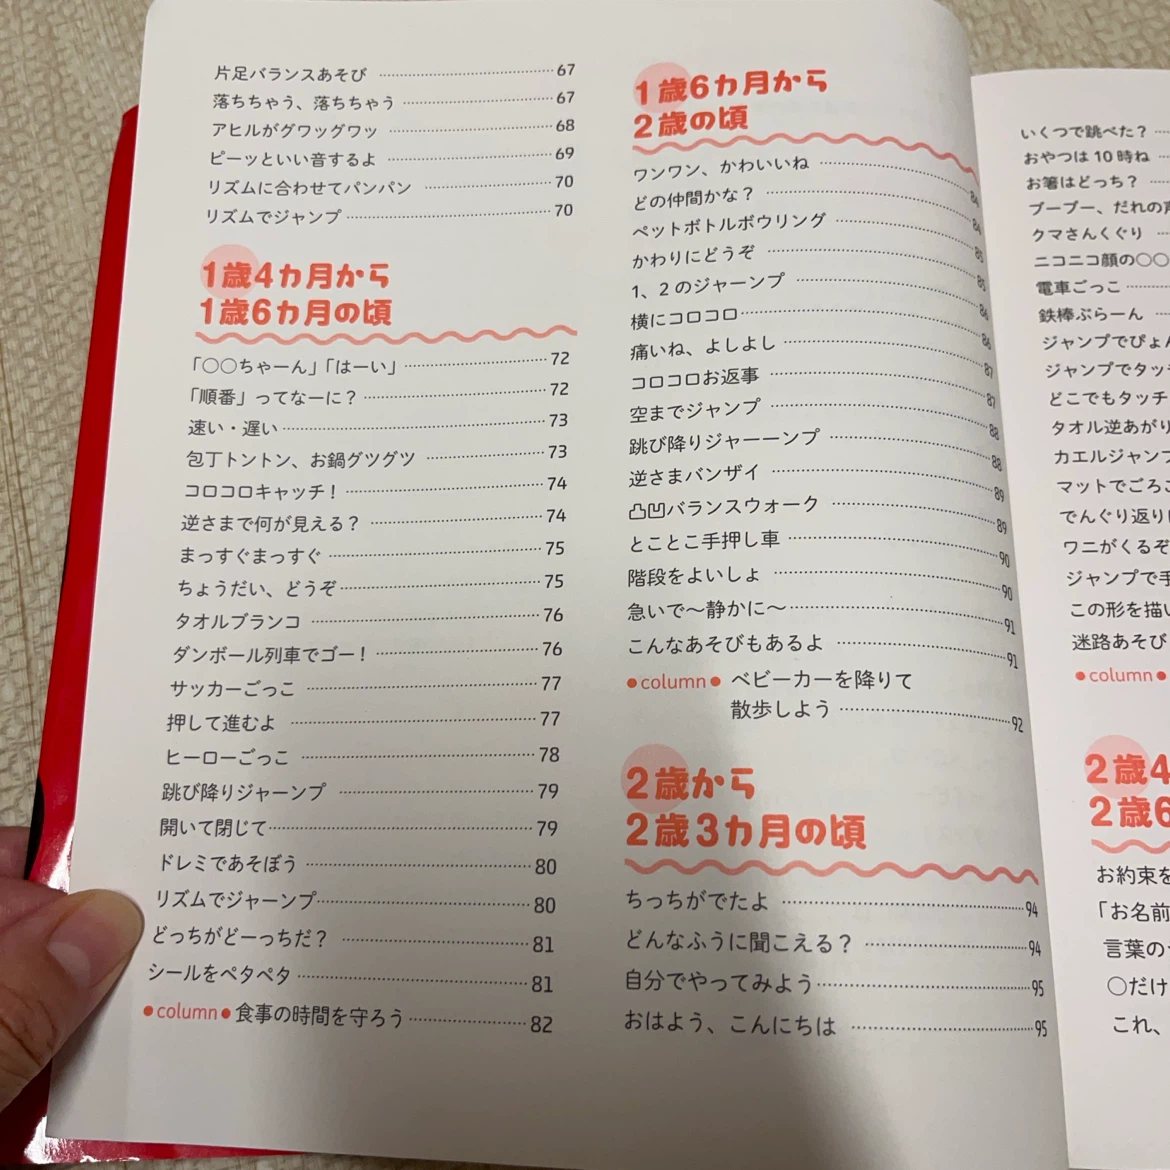 片足バランスあそび 67
落ちちゃう、落ちちゃう 67
アヒルがグワッグワッ 68
ピーッといい音するよ 69
リズムに合わせてパンパン 70
リズムでジャンプ 70
1歳4カ月から
1歳6カ月の頃
「○○ちゃーん」「はーい」 72
「順番」ってなーに？ 72
速い・遅い 73
包丁トントン、お鍋グツグツ 73
コロコロキャッチ！ 74
逆さまで何が見える？ 74
まっすぐまっすぐ 75
ちょうだい、どうぞ 75
タオルブランコ 76
ダンボール列車でゴー！ 76
サッカーごっこ 77
押して進むよ 77
ヒーローごっこ 78
跳び降りジャーンプ 79
開いて閉じて 79
ドレミであそぼう 80
リズムでジャーンプ 80
どっちがどーっちだ？ 81
シールをペタペタ 81
●column●食事の時間を守ろう 82
1歳6カ月から
2歳の頃
ワンワン、かわいいね 84
どの仲間かな？ 84
ペットボトルボウリング 85
かわりにどうぞ 85
1、2のジャーンプ 86
横にコロコロ 86
痛いね、よしよし 87
コロコロお返事 87
空までジャンプ 88
跳び降りジャーーンプ 88
逆さまバンザイ 89
凸凹バランスウォーク 89
とことこ手押し車 90
階段をよいしょ 90
急いで～静かに～ 91
こんなあそびもあるよ 91
●column● ベビーカーを降りて
散歩しよう 92
2歳から
2歳3カ月の頃
ちっちがでたよ 94
どんなふうに聞こえる？ 94
自分でやってみよう 95
おはよう、こんにちは 95
いくつで跳べた？
おやつは10時ね
お箸はどっち？
ブーブー、だれの声
クマさんくぐり
ニコニコ顔の○○
電車ごっこ
鉄棒ぶらーん
ジャンプでぴょん
ジャンプでタッチ
どこでもタッチ
タオル逆あがり
カエルジャンプ
マットでごろご
でんぐり返り
ワニがくるぞ
ジャンプで手
この形を描い
迷路あそび
●column●
2歳4
2歳6
お約束を
「お名前
言葉の
○だけ
これ、